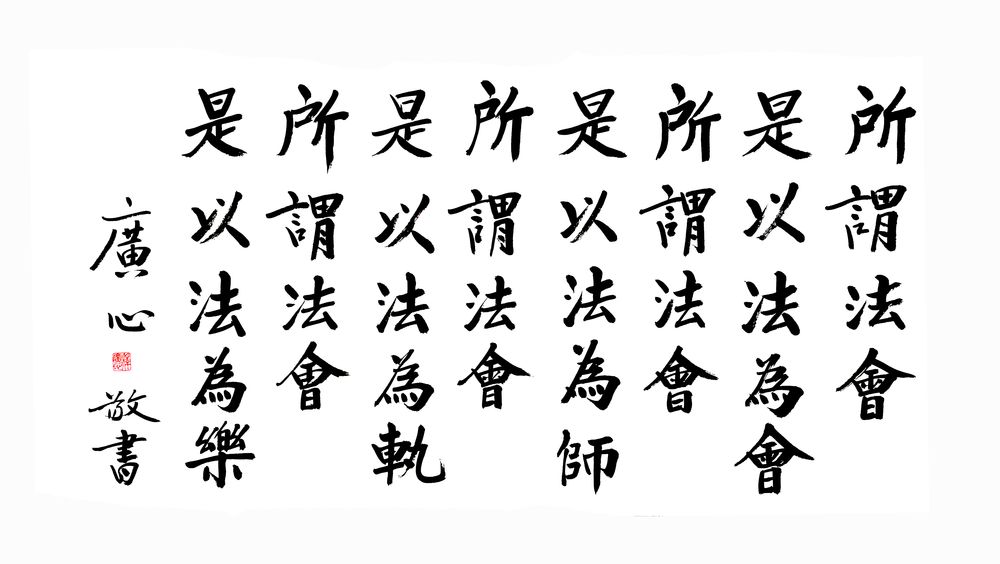 所謂法會
是以法為會
所謂法會
是以法為師
所謂法會
是以法為軌
所謂法會
是以法為樂
廣心
敬書